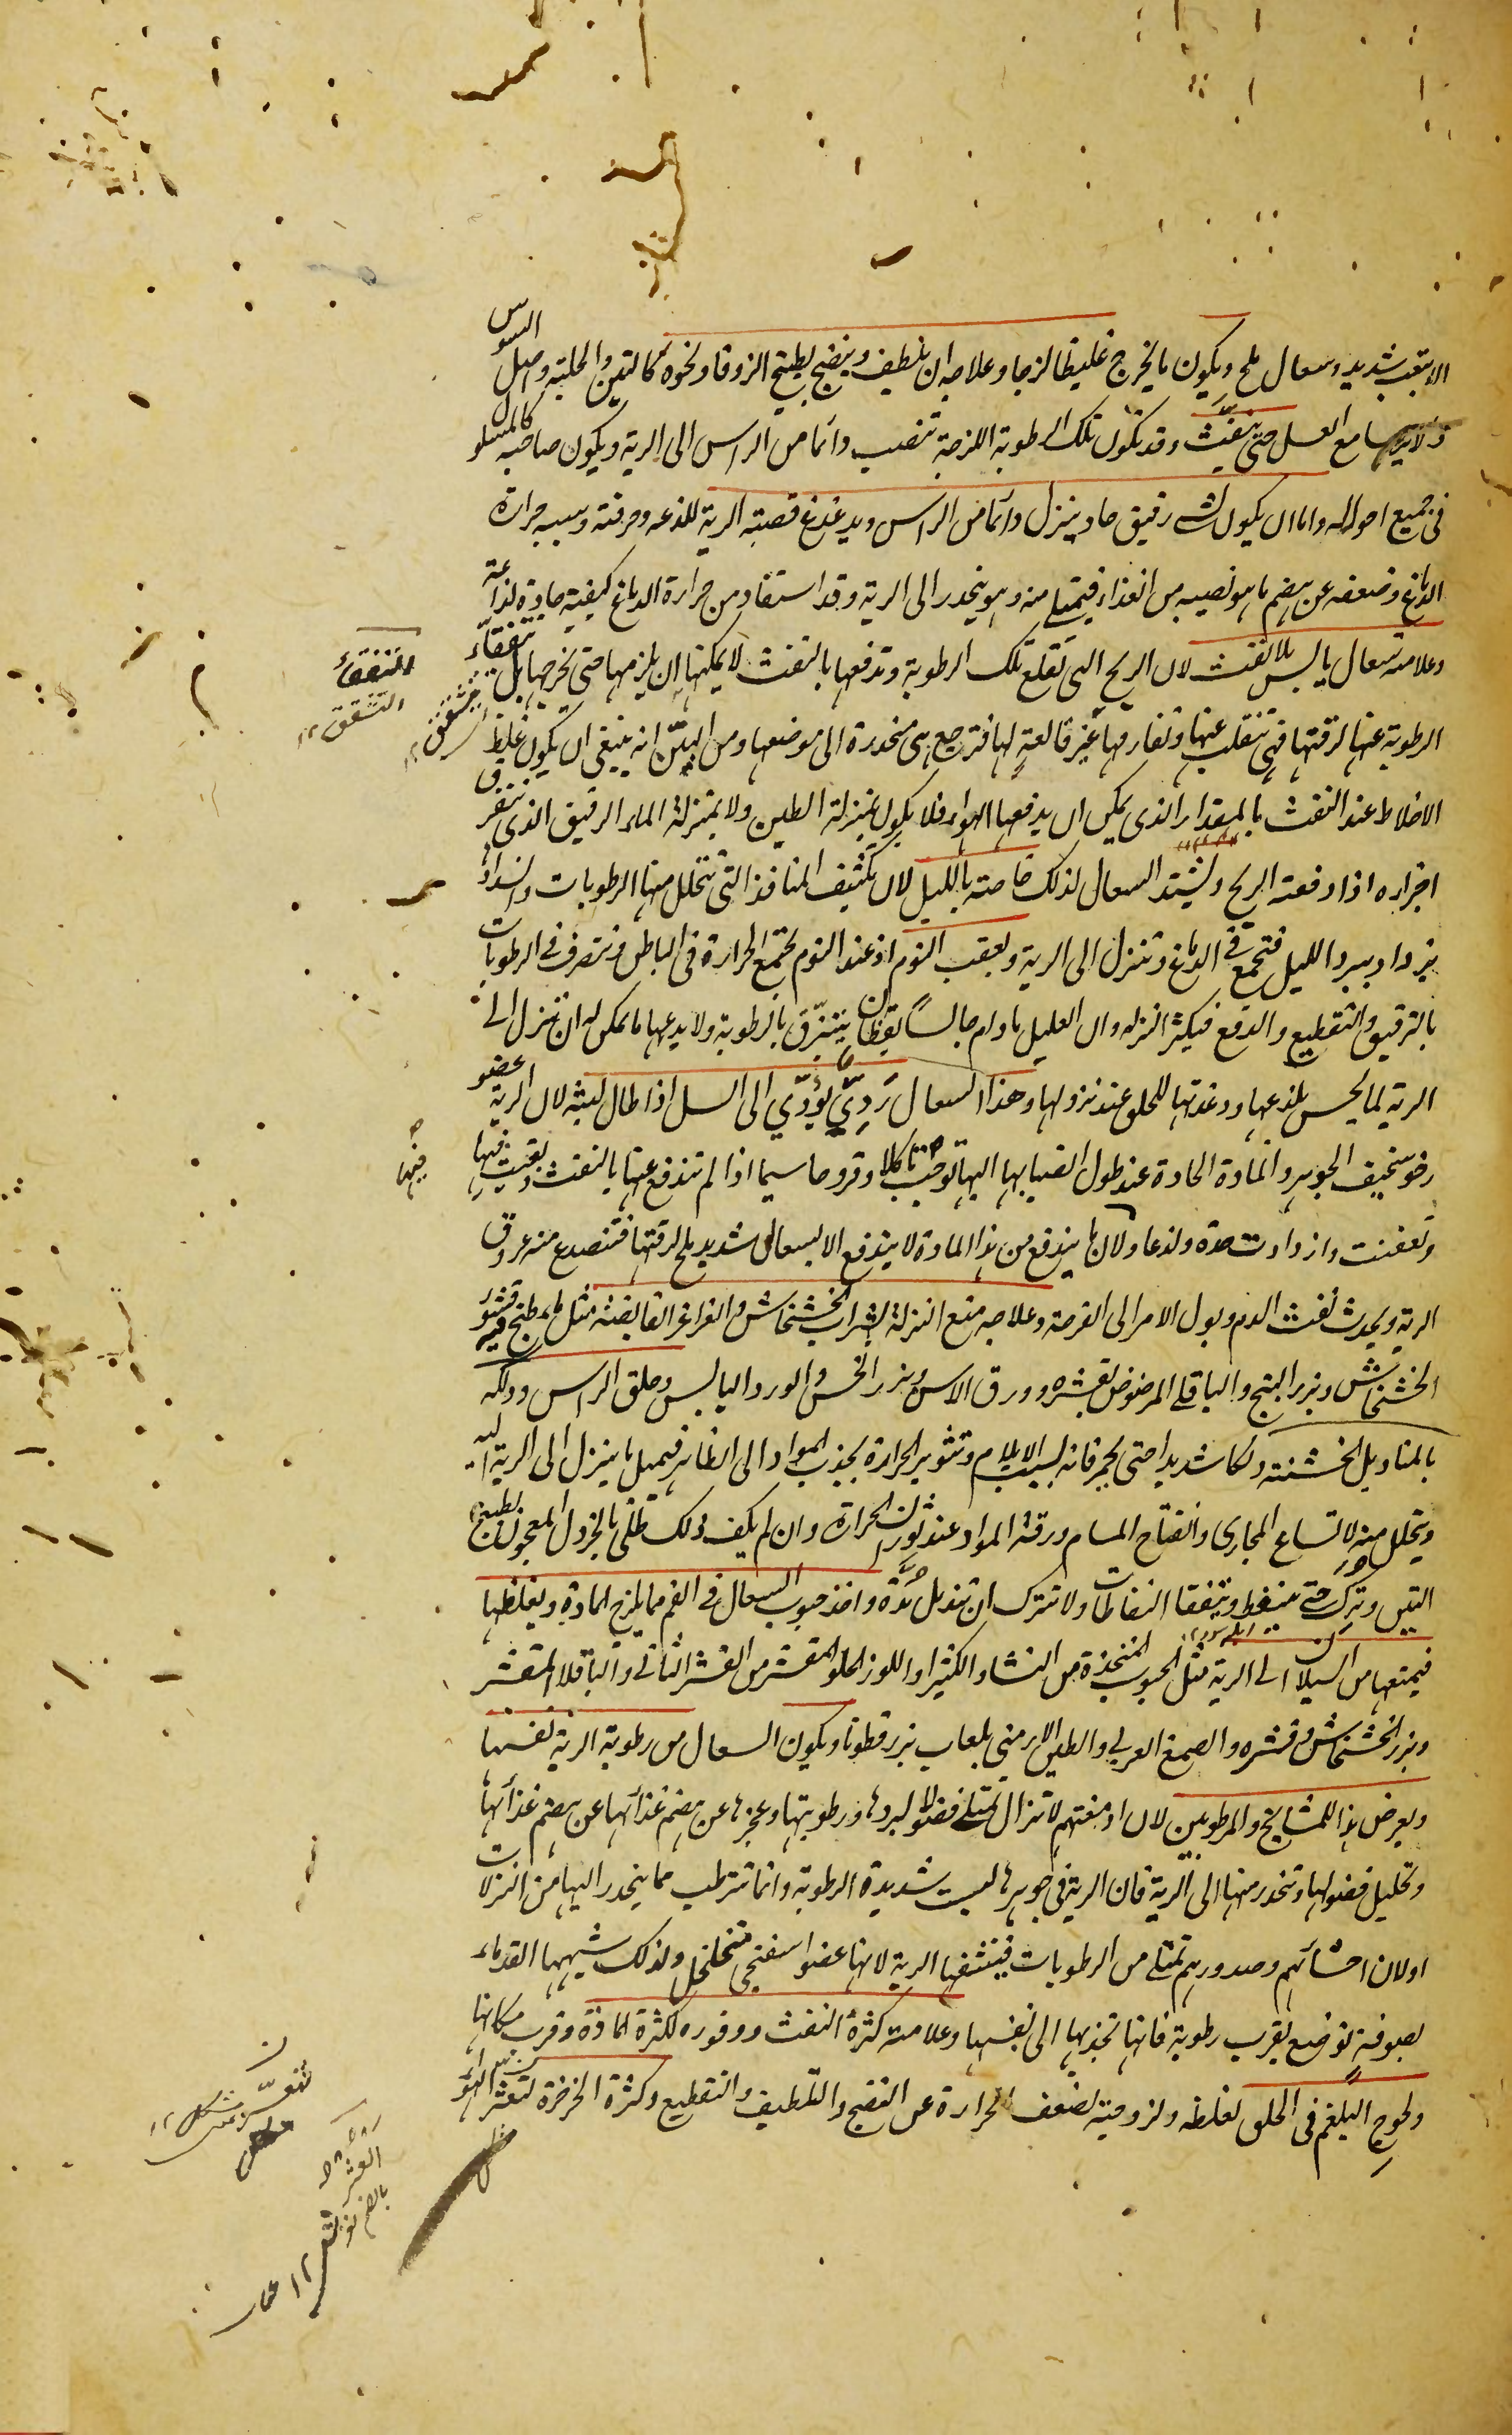 الا بتعب شديد وسعال ملح ويكون ما يخرج غليظا لزجا وعلاجه ان يلطيف وينضج بطبيخ الزوفا ونحوه كالتين والحلبة واصل السوس
مع العسل حتى ينفث وقد تكون تلك الرطوبة اللزجة تنصب دائما من الراس الى الرية ويكون صاحبه كالمسلول
فى جميع احواله واما ان يكون لشئ رقيق حاد ينزل دائما من الراس ويدغدغ قصبة الرية للذعه وحرقته وسببه حرارة
الدماغ وضعفه عن هضم ما هو نصيبه من الغذاء فيمتلى منه وهو ينحدر الى الرية وقد استفاد من حرارة الدماغ كيفية حادة لذاعة
وعلامته سعال يابس بلا نفث لان الريح التى تقلع تلك الرطوبة وتدفعها بالنفث لا يمكنها ان يلزمها حتى يخرجها بل تتفقأ
الرطوبة عنها لرقتها فهى تنقلب عنها وتفارقها غير قالعة لها فترجع هى منحدرة الى موضعها ومن البيّن انه ينبغى ان يكون غلظ
الاخلاط عند النفث بالمقدار الذى يمكن ان يدفعها الهواء فلا يكون بمنزلة الطين ولا بمنزلة الماء الرقيق الذى يتفرق
اجزاؤه اذا دفعته الريح ويشتد السعال لذلك خاصة بالليل لان تكثيف المنافذ التى تتحلل منها الرطوبات وانسدادها
يزداد ببرد الليل فتجمع فى الدماغ وتنزل الى الرية وبعقب النوم اذ عند النوم تجتمع الحرارة فى الباطن وتتصرف فى الرطوبات
بالترقيق والتقطيع والدفع فيكثر النزلة ولان العليل ما دام جالساً يقظان يتبزّق بالرطوبة ولا يدعها ما يمكن له ان تنزل الى
الرية لما يحس بلذعها ودغدغتها للحلق عند نزولها وهذا السعال رَدِىّ يؤدّي الى السل اذا طال لبثه لان الرية عضو
رخو سخيف الجوهر والمادة الحادة عند طول انصبابها اليها توجب تاكلا وقروحا سيما اذا لم تندفع عنها بالنفث وبقيت فيها
وتعفنت وازدادت حدة ولذعا ولان ما يندفع من هذا المادة لا يندفع الا بسعال شديد ملح لرقتها فتنصدع منه عروق
الرية ويحدث نفث الدم ويول الامر الى القرحة وعلاجه منع النزلة بشراب الخشخاش والغراغر القابضة مثل ماء طبخ فيه قشور
الخشخاش وبزر البنج والباقلى المرضوض بقشره وورق الاس وبزر الخس والورد اليابس وحلق الراس ودلكه
بالمناديل الخشنة دلكا شديدا حتى يحمر فانه بسبب الايلام وتثوير الحرارة يجذب المواد الى الظاهر فيميل ما ينزل الى الرية اليه
ويتحلل منه لاتساع المجارى وانفتاح المسام ورقة المواد عند ثوران الحرارة وان لم يكف ذلك طلى بالخردل المعجون بطبيخ
التين وترك حتى يتنفط وتتفقا النفاطات ولا تترك ان تندمل مدّة واخذ حبوب السعال فى الفم مما يلزج المادة ويغلظها
فيمنعها من السيلان الى الرية مثل الحبوب المتخذة من النشا والكثيرا واللوز الحلو المقشر من القشر الثانى والباقلا المقشر
وبزر الخشخاش وقشره والصمغ العربى والطين الارمنى بلعاب بزر قطونا ويكون السعال من رطوبة الرية نفسها
ويعرض هذا للمشايخ والمرطوبين لان ادمغتهم لا تزال تمتلى فضلا لبردها ورطوبتها وعجزها عن هضم غذائها عن هضم غذائها
وتحليل فضولها وتنحدر منها الى الرية فان الرية فى جوهرها ليست شديدة الرطوبة وانما تترطب مما ينحدر اليها من النزلات
او لان احشائهم وصدورهم تمتلى من الرطوبات فينشفها الرية لانها عضو اسفنجى متخلخل ولذلك شبهها القدماء
بصوفة توضع بقرب رطوبة فانها تجذبها الى نفسها وعلامته كثرة النفث ووفوره لكثرة المادة وقرب مكانها
ولحوج البلغم فى الحلق لغلظه ولزوجته لضعف الحرارة عن النضج والتلطيف والتقطيع وكثرة الخرخرة لتعثر الهواء
التفقؤ
التشقق ١٢
فيها